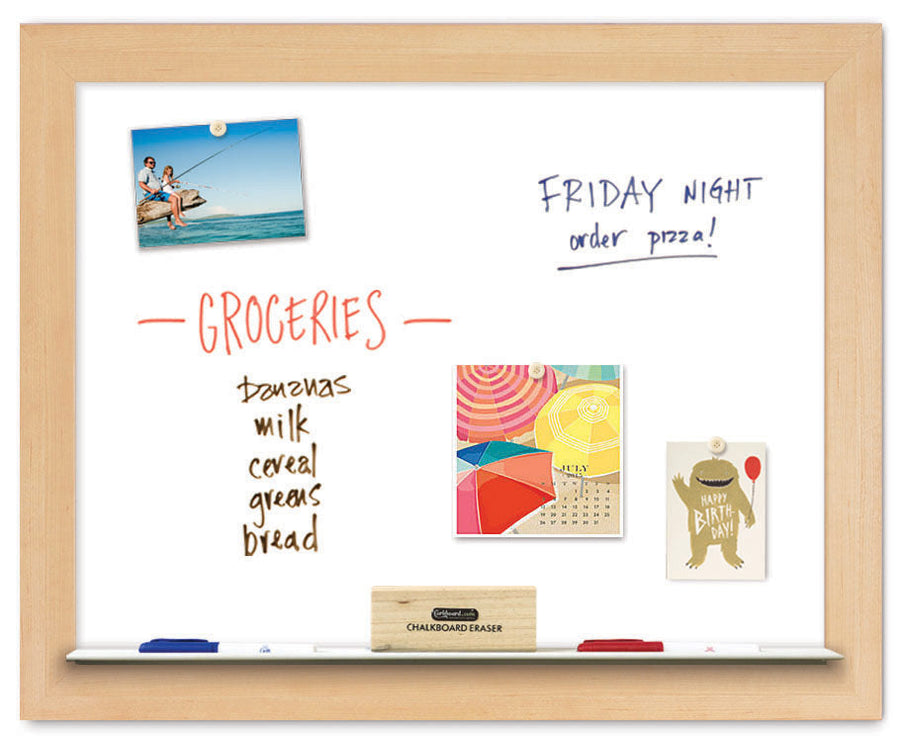 FRIDAY NIGHT
order pizza!
— GROCERIES —
bananas
milk
cereal
greens
bread
JULY
2015
HAPPY
BIRTH-
DAY!
CHALKBOARD ERASER